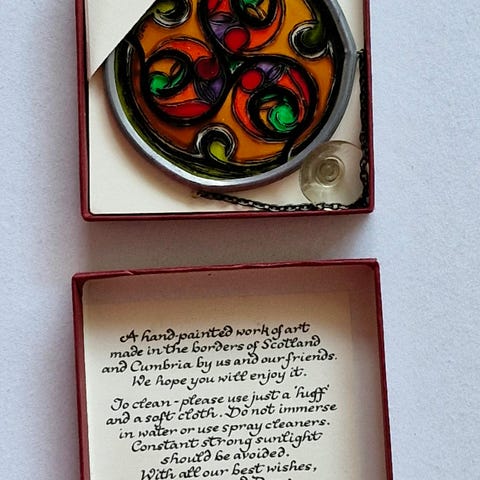 A hand-painted work of art
made in the borders of Scotland
and Cumbria by us and our friends.
We hope you will enjoy it.
To clean - please use just a 'huff'
and a soft cloth. Do not immerse
in water or use spray cleaners.
Constant strong sunlight
should be avoided.
With all our best wishes,